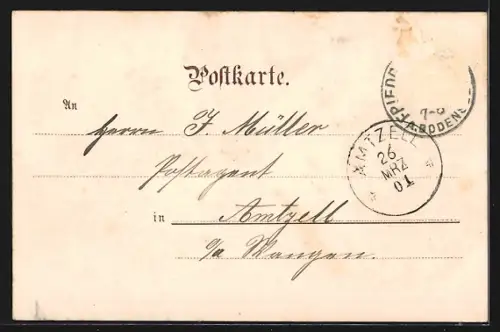 Postkarte.
FRIEDR
7-8
A. BODENS
An
Herrn J. Müller
AMTZELL
26
MRZ
01
Postagent
in Amtzell
o/a Wangen.